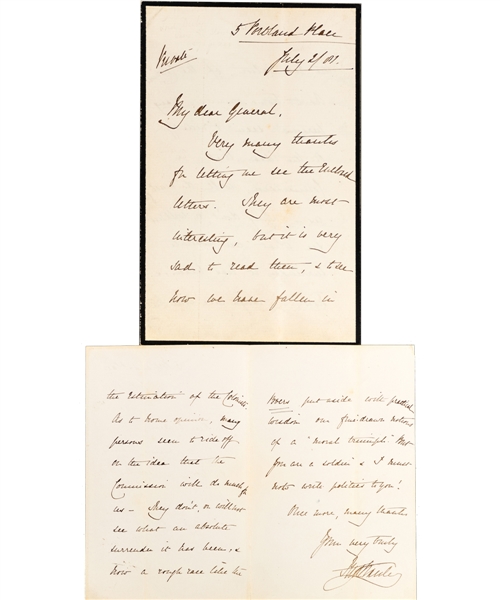 5 Portland Place
July 2/81.
Private
My dear General,
Very many thanks
for letting me see the Enclosed
letters. They are most
interesting, but it is very
sad to read them, & to see
how we have fallen in
the estimation of the Colonists.
As to home opinion, many
persons seem to ride off
on the idea that the
Commission will do much for
us — They don't, or will not
see what an absolute
surrender it has been, &
how a rough race like the
Boers put aside with practical
wisdom our fine drawn notions
of a "moral triumph." But
you are a soldier & I must
not write politics to you!
Once more, many thanks
Yours very truly